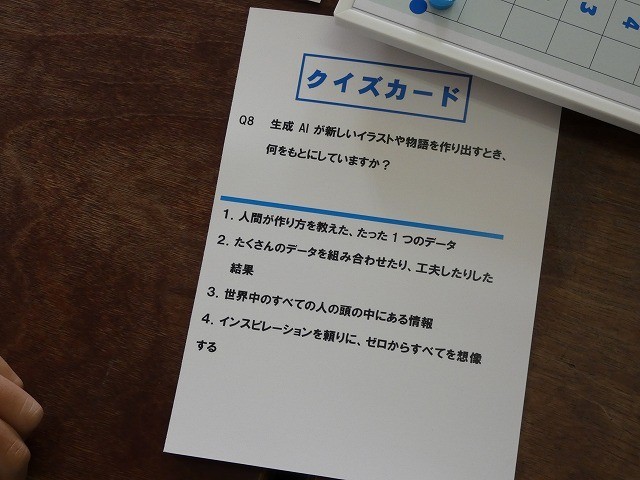 クイズカード
Q8 生成 AI が新しいイラストや物語を作り出すとき、
何をもとにしていますか？
1. 人間が作り方を教えた、たった 1 つのデータ
2. たくさんのデータを組み合わせたり、工夫したりした
結果
3. 世界中のすべての人の頭の中にある情報
4. インスピレーションを頼りに、ゼロからすべてを想像
する
3
4